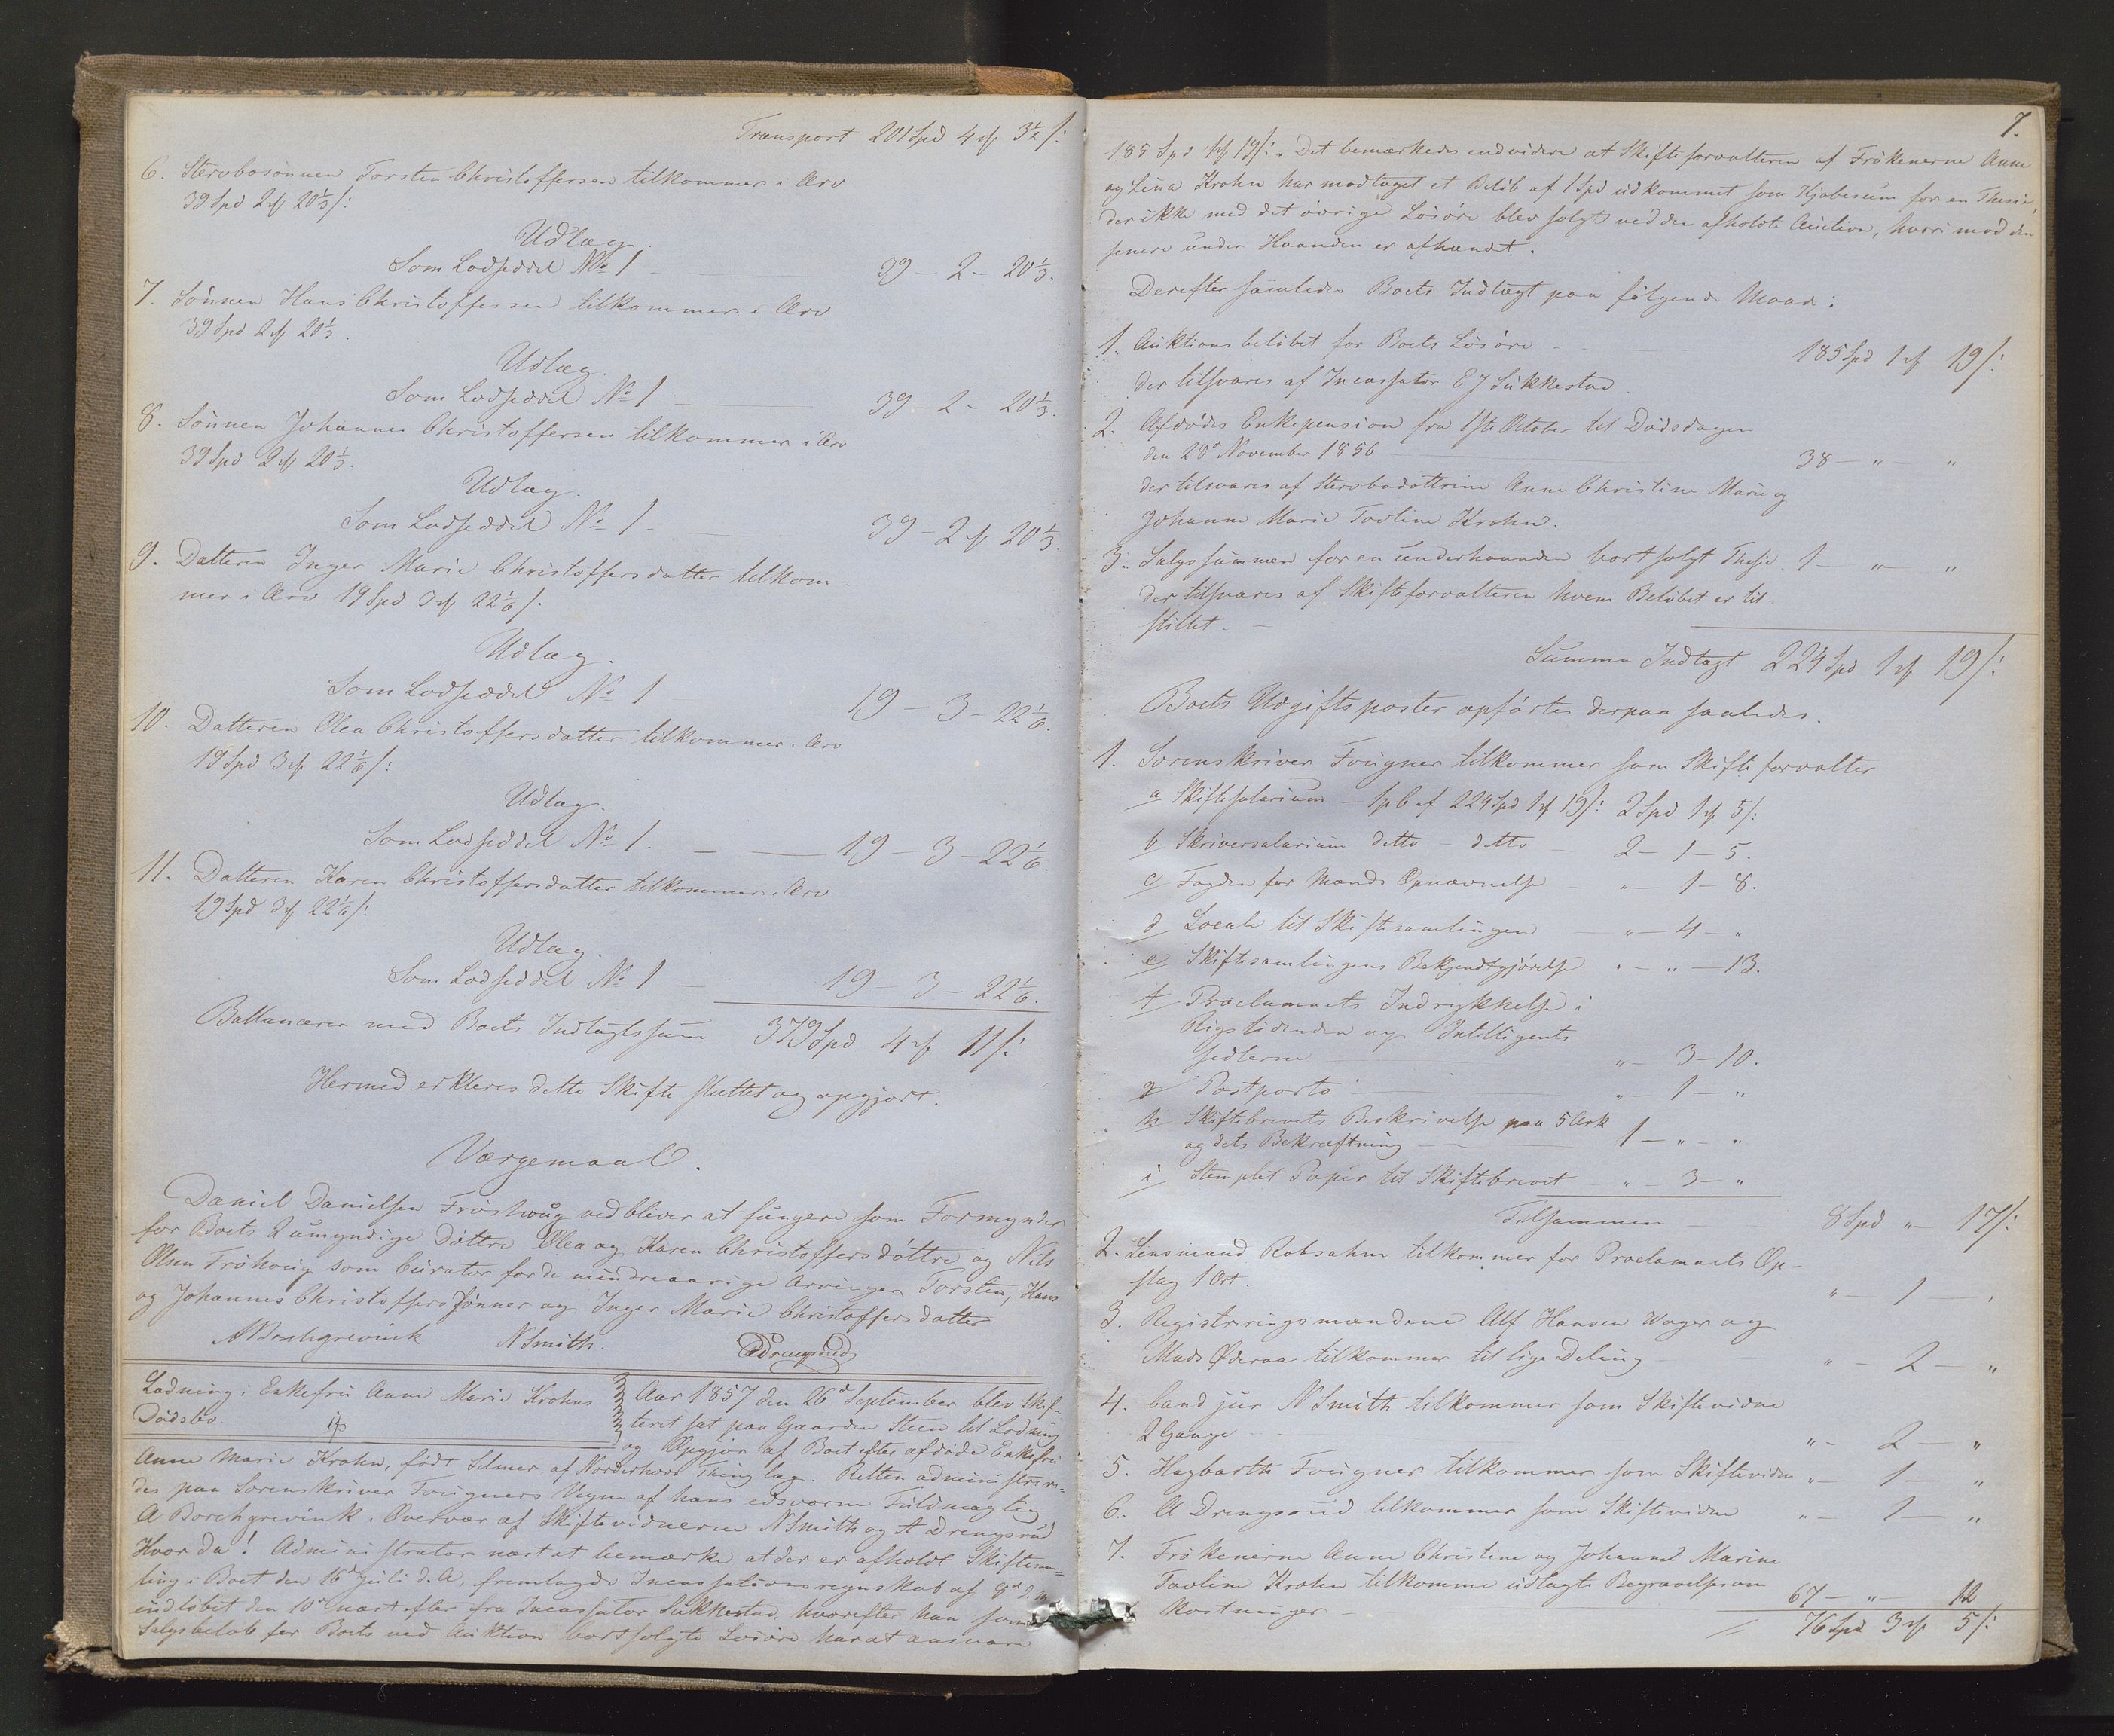 Transport 201 Spd 4 # 3½ /:
6. Stervbosönnen Torsten Christoffersen tilkommer i Arv
39 Spd 2 # 20⅓ /:
Udlæg.
Som Lodseddel No 1 — 39 – 2 – 20⅓.
7. Sönnen Hans Christoffersen tilkommer i Arv
39 Spd 2 # 20⅓.
Udlæg.
Som Lodseddel No 1 — 39 – 2 – 20⅓.
8. Sönnen Johannes Christoffersen tilkommer i Arv
39 Spd 2 # 20⅓.
Udlæg.
Som Lodseddel No 1 — 39 – 2 # 20⅓.
9. Datteren Inger Marie Christoffersdatter tilkom-
mer i Arv 19 Spd 3 # 22⅙ /:
Udlæg.
Som Lodseddel No 1 19 – 3 – 22⅙.
10. Datteren Olea Christoffersdatter tilkommer i Arv
19 Spd 3 # 22⅙ /:
Udlæg.
Som Lodseddel No 1. — 19 – 3 – 22⅙.
11. Datteren Karen Christoffersdatter tilkommer i Arv
19 Spd 3 # 22⅙ /:
Udlæg.
Som Lodseddel No 1 — 19 – 3 – 22⅙.
Ballancerer med Boets Indtægtssum 379 Spd 4 # 11 /:
Hermed erklæres dette Skifte sluttet og opgjort.
Værgemaal.
Daniel Danielsen Fröshoug vedbliver at fungere som Formynder
for Boets 2 umyndige Döttre Olea og Karen Christoffersdöttre og Nils
Olsen Fröhoug som Curator for de mindreaarige Arvinger Torsten, Hans
og Johannes Christoffers Sönner og Inger Marie Christoffersdatter
A Borchgrevink N Smith. A Drengsrud
Lodning i Enkefru Anne Marie Krohns
Dödsbo.
Aar 1857 den 26d September blev Skif-
teret sat paa Gaarden Steen til Lodning
og Opgjör af Boet efter afdöde Enkefru
Anne Marie Krohn, födt Selmer af Norderhovs Thinglag. Retten administrere-
des paa Sorenskriver Fougners Vegne af hans edsvorne Fuldmægtig
A Borchgrevink. Overvær af Skiftevidnerne N Smith og A Drengsrud
Hvor da! Administrator næst at bemærke at der er afholdt Skiftesam-
ling i Boet den 16d Juli d. A. fremlagde Incassationsregnskab af 8d d. M.
indlöbet den 10d næst efter fra Incassator Sukkestad, hvorefter han som
Salgsbelöb for Boets ved Auktion bortsolgte Lösöre har at ansvare
7.
185 Spd 1 # 19 /:. Det bemærkedes endvidere at Skifteforvalteren af Frökenerne Anne
og Lina Krohn har modtaget et Belöb af 1 Spd udkommet som Kjöbesum for en Thesie,
der ikke med det övrige Lösöre blev solgt ved den afholdte Auction, hvorimod den
senere under Haanden er afhændet.
Derefter samledes Boets Indtægt paa fölgende Maade:
1. Auktionsbelöbet for Boets Lösöre — 185 Spd 1 # 19 /:
der tilsvares af Incassator E J Sukkestad.
2. Afdödes Enkepension fra 1ste October til Dödsdagen
den 28d November 1856 — 38 – " – "
der tilsvares af Stervbodöttrene Anne Christine Marie og
Johanne Marie Tovline Krohn.
3. Salgssummen for en underhaanden bortsolgt Thesie. 1 – " – "
der tilsvares af Skifteforvalteren hvem Belöbet er til-
stillet —
Summa Indtægt 224 Spd 1 # 19 /:
Boets Udgiftsposter opförtes derpaa saaledes.
1. Sorenskriver Fougner tilkommer som Skifteforvalter
a Skiftesalarium – 1 pC af 224 Spd 1 # 19 /: 2 Spd 1 # 5 /:
b Skriversalarium detto – detto – 2 – 1 – 5.
c Fogden for Mænds Opnævnelse – " – 1 – 8.
d Locale til Skiftesamlingen — " – 4 – "
e Skiftesamlingens Bekjendtgjörelse " – " – 13.
f Proclamaets Indrykkelse i
Rigstidenden og Intelligents
sedlerne — " – 3 – 10.
g Postporto — " – 1 – "
h Skiftebrevets Beskrivelse paa 5 Ark
og dets Bekræftning — 1 – " – "
i Stemplet Papir til Skiftebrevet – " – 3 – "
Tilsammen — 8 Spd " – 17 /:
2. Lensmand Robsahm tilkommer for Proclamaets Op-
slag 1 Ort. " – 1 – "
3. Registreringsmændene Alf Hansen Wager og
Mads Øderaa tilkommer til lige Deling — " – 2 – "
4. Cand jur N Smith tilkommer som Skiftevidne
2 Gange — " – 2 – "
5. Hagbarth Fougner tilkommer som Skiftevidne " – 1 – "
6. A Drengsrud tilkommer som Skiftevidne " – 1 – "
7. Frökenerne Anne Christine og Johanne Marine
Tovline Krohn tilkomme udlagte Begravelsesom
kostninger — 67 – " – 12
76 Spd 3 # 5 /: